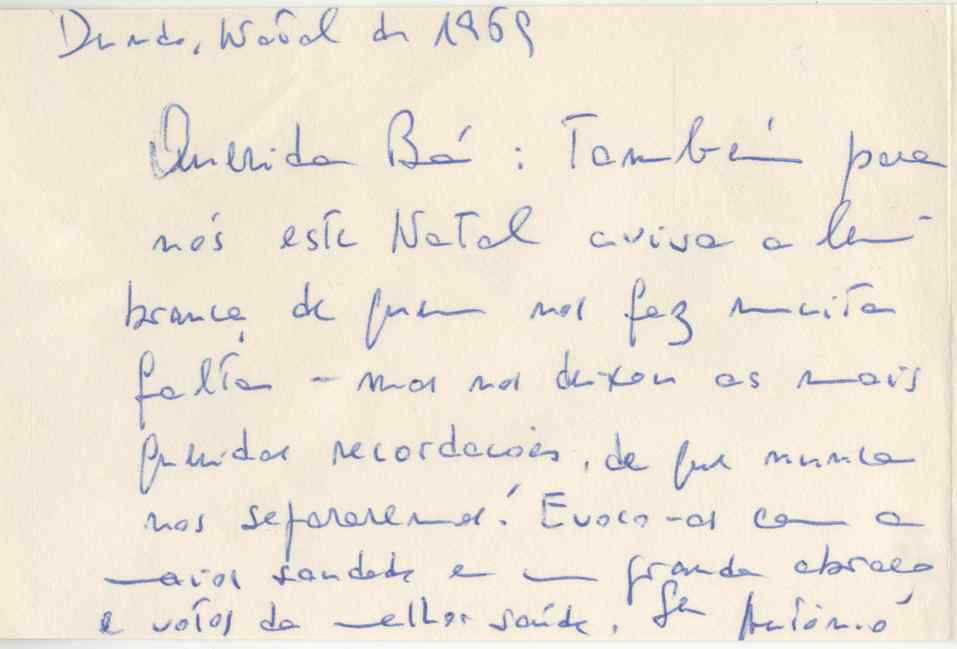 Dundo, Natal de 1969
Querida Bá: Também para
nós este Natal aviva a lem-
brança de quem nos faz muita
falta - mas nos deixou as mais
queridas recordações, de que nunca
nos separaremos! Evoco-as com a
maior saudade e um grande abraço
e votos da melhor saúde. António